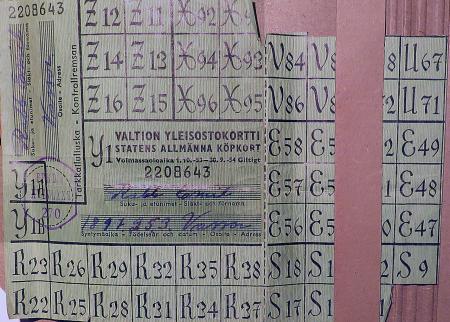 2208643
Z12 Z11 X92 X91
V84 V8 8 U67
Z14 Z13 X94 X93
V86 V8 8 U71
Z16 Z15 X96 X95
E58 E5 50 E49
Y1 VALTION YLEISOSTOKORTTI
STATENS ALLMÄNNA KÖPKORT
Voimassaoloaika 1.10.-53—30.9.-54 Giltigt
2208643
Suku- ja etunimet - Släkt- och förnamn
Syntymäaika - Födelseår och datum - Osoite - Adress
Tarkkailuliuska - Kontrollremsan
Suku- ja etunimet - Släkt- och förnamn
Osoite - Adress
E57 E5 51 E48
E56 E5 52 E47
R23 R26 R29 R32 R35 R38 S18 S1 S9
R22 R25 R28 R31 R34 R37 S17 S1